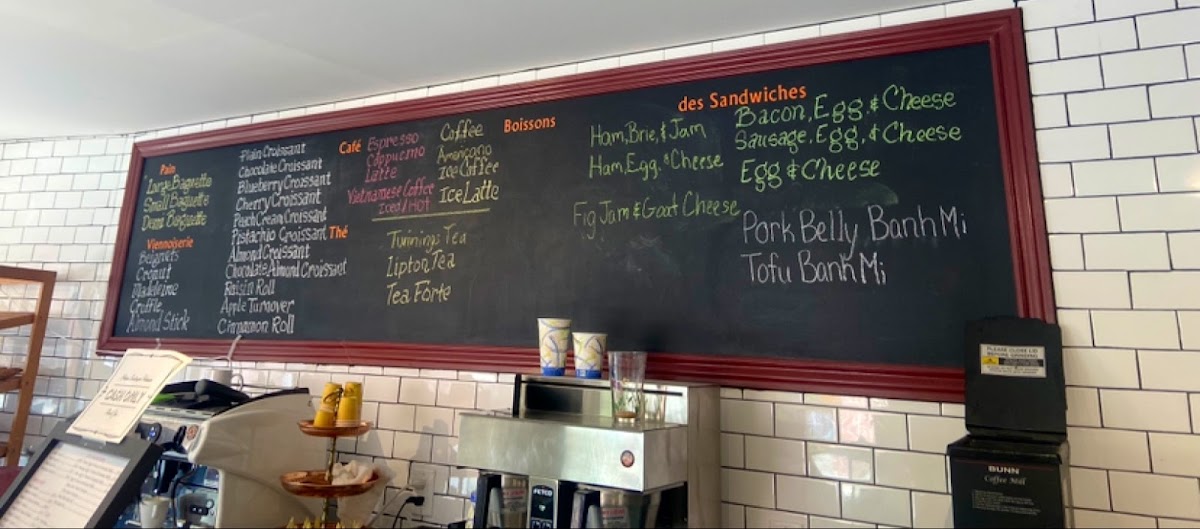 Pain
Large Baguette
Small Baguette
Demi Baguette
Viennoiserie
Beignets
Cronut
Madeleine
Cruffle
Almond Stick
Plain Croissant
Chocolate Croissant
Blueberry Croissant
Cherry Croissant
Peach Cream Croissant
Pistachio Croissant
Almond Croissant
Chocolate Almond Croissant
Raisin Roll
Apple Turnover
Cinnamon Roll
Café
Espresso
Cappucino
Latte
Vietnamese Coffee
Iced/Hot
Coffee
Americano
Ice Coffee
Ice Latte
Thé
Twinnings Tea
Lipton Tea
Tea Forte
Boissons
des Sandwiches
Ham, Brie, & Jam
Ham, Egg, & Cheese
Fig Jam & Goat Cheese
Bacon, Egg, & Cheese
Sausage, Egg, & Cheese
Egg & Cheese
Pork Belly Banh Mi
Tofu Banh Mi
CASH ONLY
FETCO
PLEASE CLOSE LID
BEFORE GRINDING
BUNN
Coffee Mill